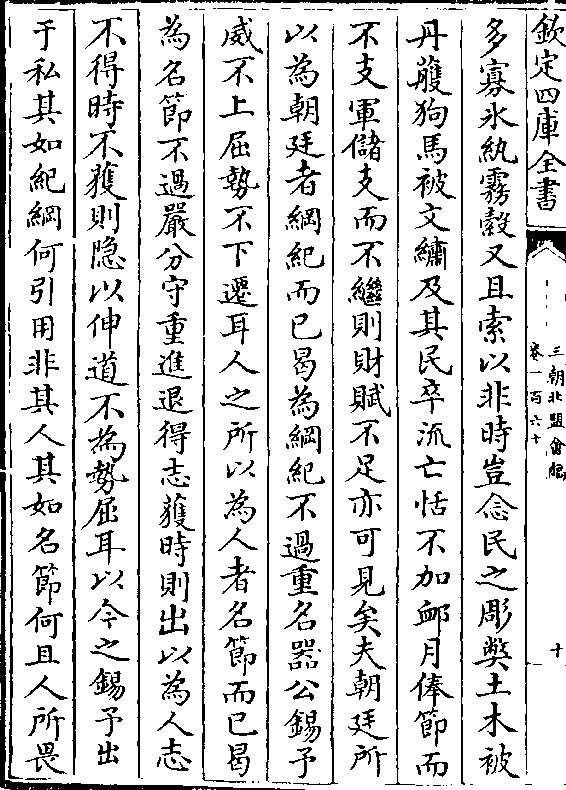 欽定四庫全書
三朝北盟會編
卷一百六十
十
多寡氷紈霧縠又且索以非時豈念民之彫弊土木被
丹雘狗馬被文繡及其民卒流亡恬不加卹月俸節而
不支軍儲支而不繼則財賦不足亦可見矣夫朝廷所
以為朝廷者綱紀而已曷為綱紀不過重名器公錫予
威不上屈勢不下遷耳人之所以為人者名節而已曷
為名節不過嚴分守重進退得志獲時則出以為人志
不得時不獲則隐以伸道不為勢屈耳以今之錫予出
于私其如紀綱何引用非其人其如名節何且人所畏